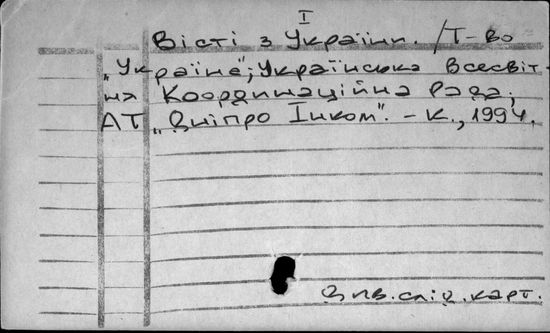 I
Вісті з України. /Т-во
„Україна"; Українська Всесвіт-
на Координаційна Рада;
АТ „Дніпро Інком". – К., 1994.
З пв. спів. карт.